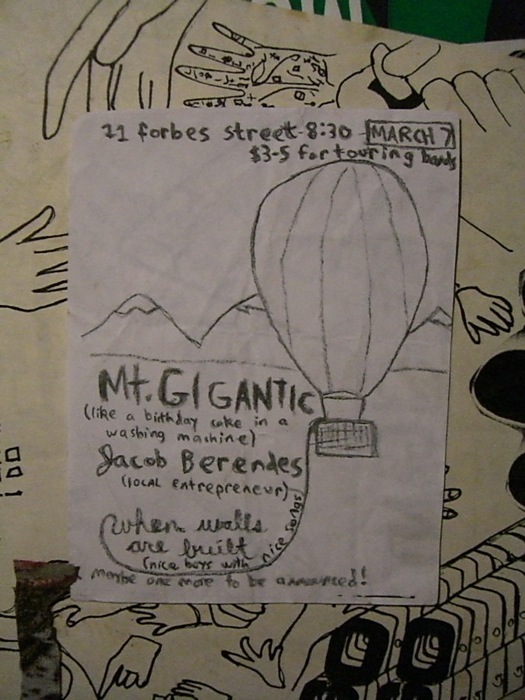 11 forbes street - 8:30 - MARCH 7
$3-5 for touring bands
Mt. GIGANTIC
(like a birthday cake in a
washing machine)
Jacob Berendes
(local entrepreneur)
when walls
are built
(nice boys with nice songs)
maybe one more to be announced!